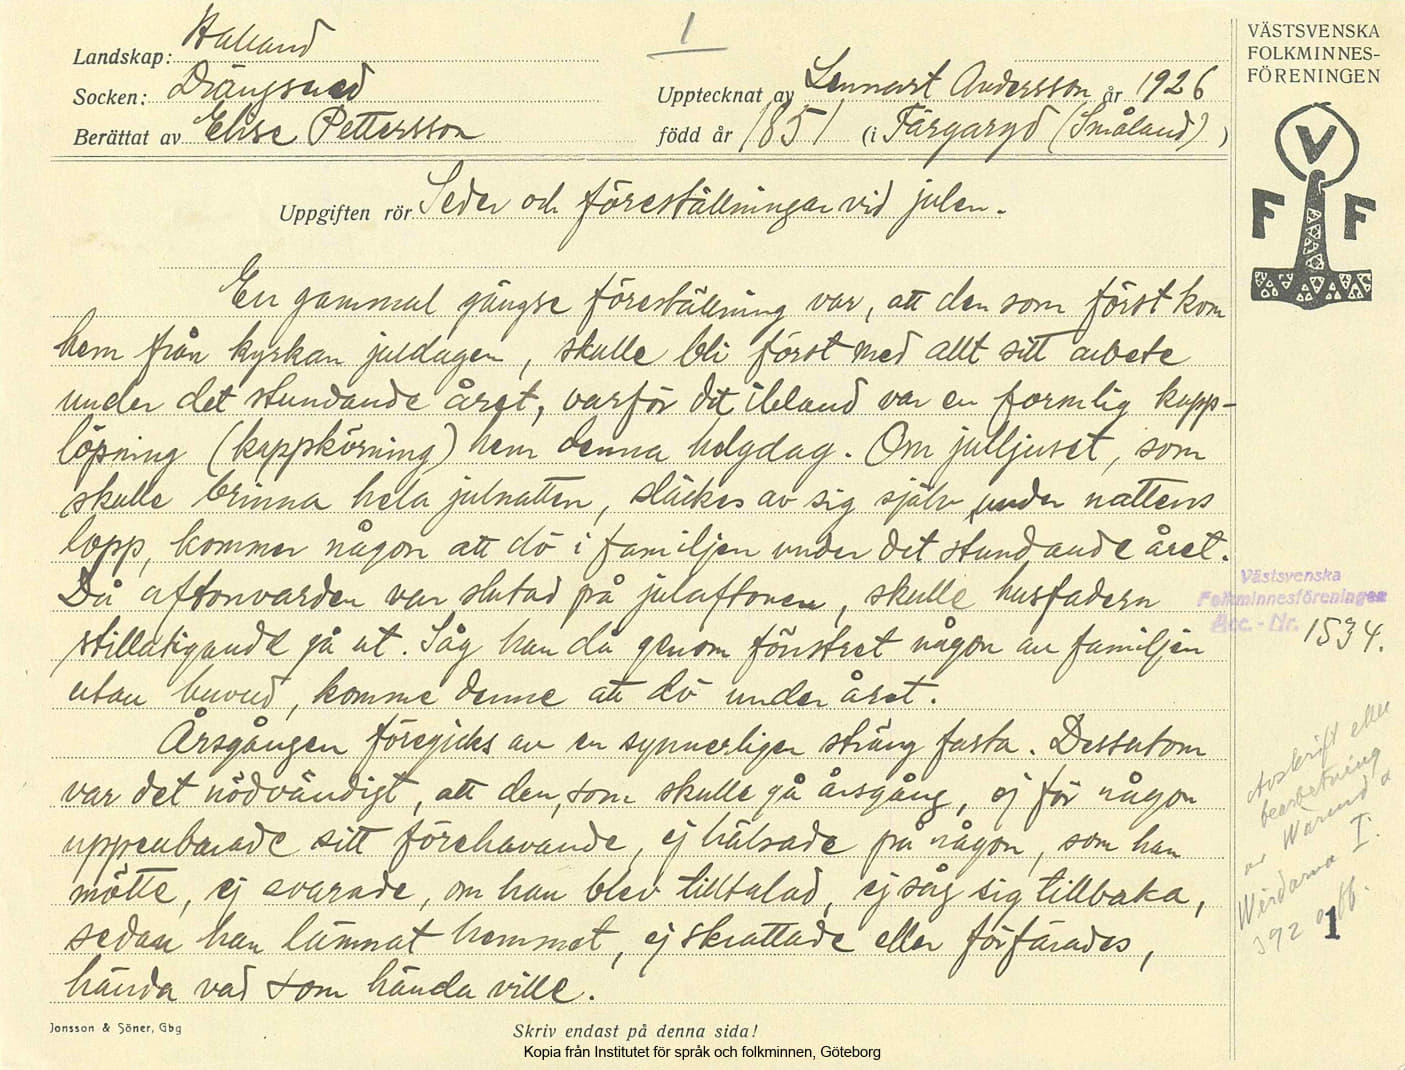 1
Landskap: Halland
Socken: Drängsered
Berättat av Elise Pettersson
Upptecknat av Lennart Andersson år 1926
född år 1851 (i Färgaryd (Småland) )
Uppgiften rör Seder och föreställningar vid julen.
En gammal gängse föreställning var, att den som först kom
hem från kyrkan juldagen, skulle bli först med allt sitt arbete
under det stundande året, varför det ibland var en formlig kapp-
löpning (kappkörning) hem denna helgdag. Om julljuset, som
skulle brinna hela julnatten, släckes av sig själv under nattens
lopp, kommer någon att dö i familjen under det stundande året.
Då aftonvarden var slutad på julaftonen, skulle husfadern
stillatigande gå ut. Såg han då genom fönstret någon av familjen
utan huvud, komme denne att dö under året.
Årsgången föregicks av en synnerligen sträng fasta. Dessutom
var det nödvändigt, att den, som skulle gå årsgång, ej för någon
uppenbarade sitt förehavande, ej hälsade på någon, som han
mötte, ej svarade, om han blev tilltalad, ej såg sig tillbaka,
sedan han lämnat hemmet, ej skrattade eller förfärades,
hända vad som hända ville.
Jonsson & Söner, Gbg
Skriv endast på denna sida!
Kopia från Institutet för språk och folkminnen, Göteborg
VÄSTSVENSKA
FOLKMINNES-
FÖRENINGEN
V
F F
Västsvenska
Folkminnesföreningen
Acc.-Nr. 1534.
Avskrift eller
bearbetning
av Wärend o
Wirdarna I.
392 o ff.
1